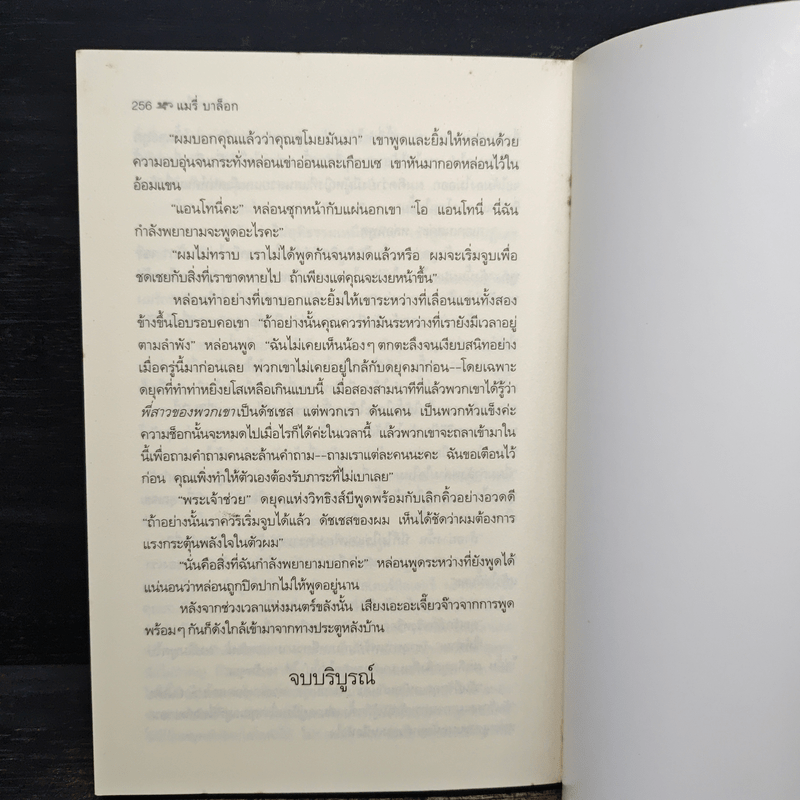 256 แมรี่ บาล็อก
"ผมบอกคุณแล้วว่าคุณขโมยมันมา" เขาพูดและยิ้มให้หล่อนด้วย
ความอบอุ่นจนกระทั่งหล่อนเข่าอ่อนและเกือบเซ เขาหันมากอดหล่อนไว้ใน
อ้อมแขน
"แอนโทนี่คะ" หล่อนซุกหน้ากับแผ่นอกเขา "โอ แอนโทนี่ นี่ฉัน
กำลังพยายามจะพูดอะไรคะ"
"ผมไม่ทราบ เราไม่ได้พูดกันจนหมดแล้วหรือ ผมจะเริ่มจูบเพื่อ
ชดเชยกับสิ่งที่เราขาดหายไป ถ้าเพียงแต่คุณจะเงยหน้าขึ้น"
หล่อนทำอย่างที่เขาบอกและยิ้มให้เขาระหว่างที่เลื่อนแขนทั้งสอง
ข้างขึ้นโอบรอบคอเขา "ถ้าอย่างนั้นคุณควรทำมันระหว่างที่เรายังมีเวลาอยู่
ตามลำพัง" หล่อนพูด "ฉันไม่เคยเห็นน้องๆ ตกตะลึงจนเงียบสนิทอย่าง
เมื่อครู่นี้มาก่อนเลย พวกเขาไม่เคยอยู่ใกล้กับดยุคมาก่อน--โดยเฉพาะ
ดยุคที่ทำท่าหยิ่งยโสเหลือเกินแบบนี้ เมื่อสองสามนาทีที่แล้วพวกเขาได้รู้ว่า
พี่สาวของพวกเขาเป็นดัชเชส แต่พวกเรา ดันแคน เป็นพวกหัวแข็งค่ะ
ความช็อกนั้นจะหมดไปเมื่อไรก็ได้ค่ะในเวลานี้ แล้วพวกเขาจะถลาเข้ามาใน
นี้เพื่อถามคำถามคนละล้านคำถาม--ถามเราแต่ละคนนะคะ ฉันขอเตือนไว้
ก่อน คุณเพิ่งทำให้ตัวเองต้องรับภาระที่ไม่เบาเลย"
"พระเจ้าช่วย" ดยุคแห่งวิทธิงส์บีพูดพร้อมกับเลิกคิ้วอย่างอวดดี
"ถ้าอย่างนั้นเราควรเริ่มจูบได้แล้ว ดัชเชสของผม เห็นได้ชัดว่าผมต้องการ
แรงกระตุ้นพลังใจในตัวผม"
"นั่นคือสิ่งที่ฉันกำลังพยายามบอกค่ะ" หล่อนพูดระหว่างที่ยังพูดได้
แน่นอนว่าหล่อนถูกปิดปากไม่ให้พูดอยู่นาน
หลังจากช่วงเวลาแห่งมนตร์ขลังนั้น เสียงเอะอะเจี๊ยวจ๊าวจากการพูด
พร้อมๆ กันก็ดังใกล้เข้ามาจากทางประตูหลังบ้าน
จบบริบูรณ์